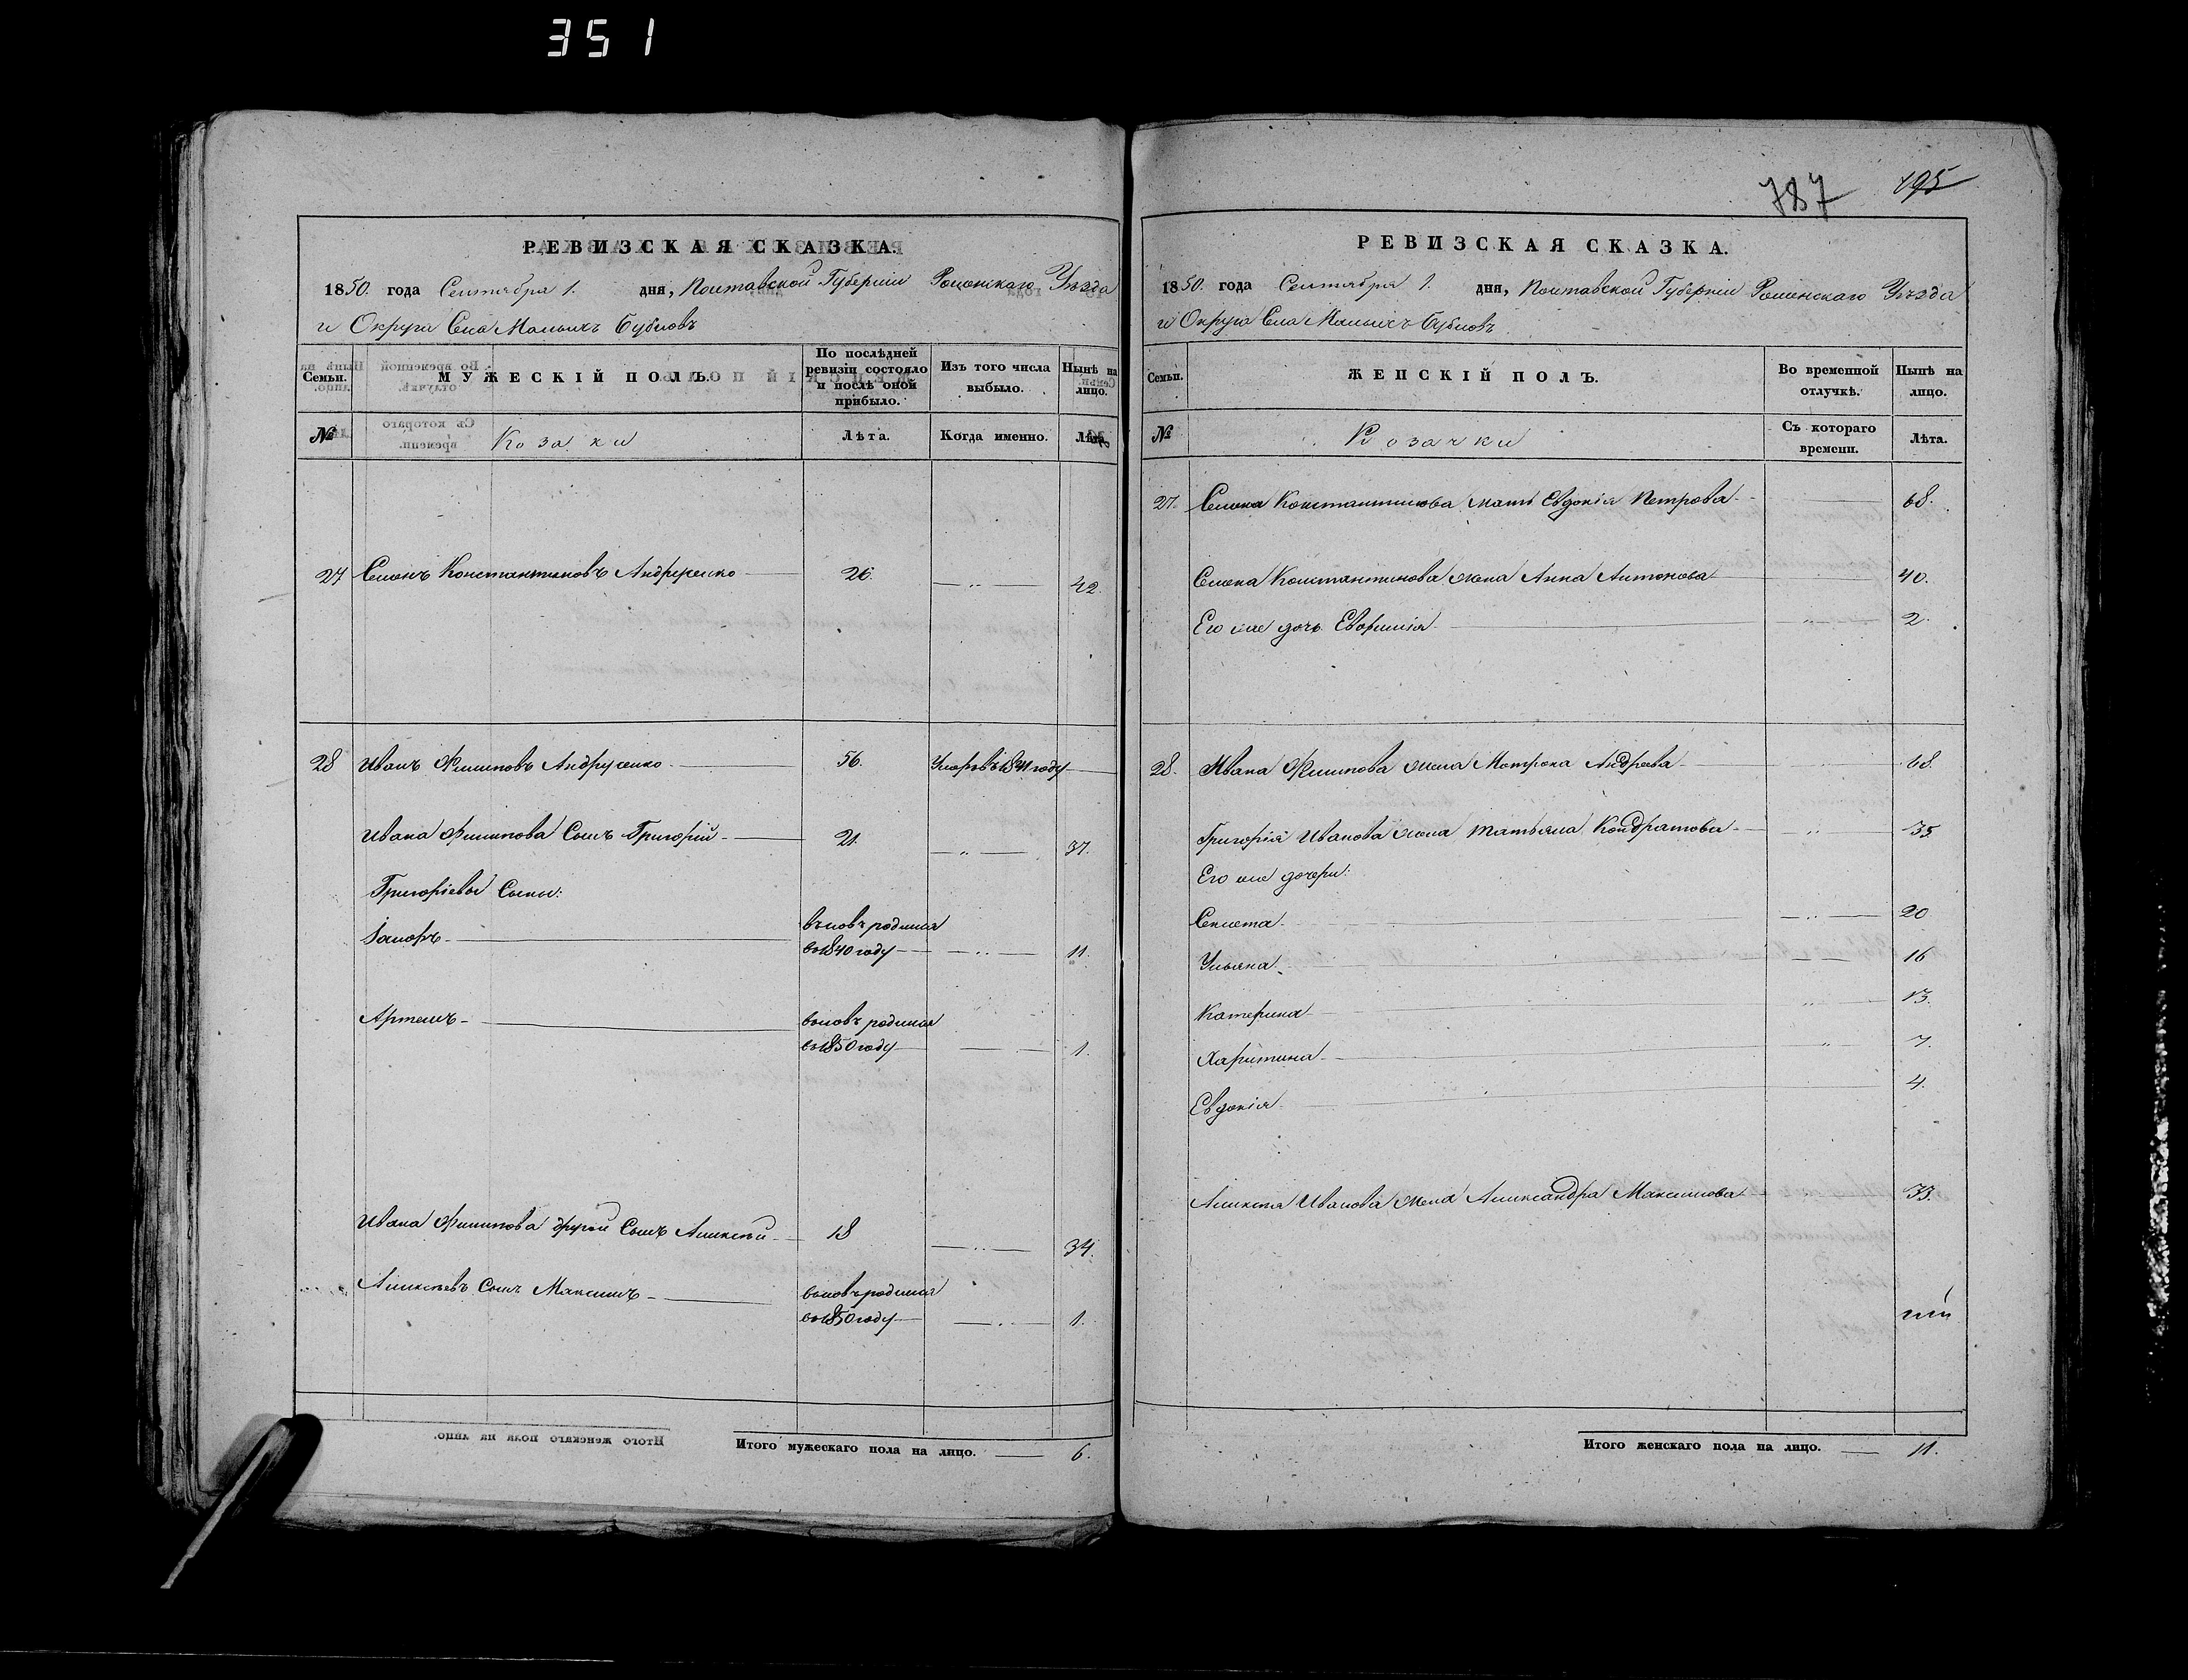 351
787 195
РЕВИЗСКАЯ СКАЗКА.
1850. года Сентября 1. дня, Полтавской Губерніи Роменскаго Уѣзда
и Округа Села Малыхъ Бубновъ
Семьи. МУЖЕСКІЙ ПОЛЪ. По послѣдней ревизіи состояло и послѣ оной прибыло. Изъ того числа выбыло. Нынѣ на лицо.
№ Козаки Лѣта. Когда именно. Лѣта.
27 Семенъ Константиновъ Андрущенко 26. 42.
28 Иванъ Филиповъ Андрущенко 56. Умеръ въ 1841 году
Ивана Филипова Сынъ Григорій 21. 37.
Григоріевы Сыны:
вновь родился
въ 1840 году 11.
Артемъ вновь родился
въ 1850 году 1.
Ивана Филипова другой Сынъ Алексѣй 18 34.
Алексѣевъ Сынъ Максимъ вновь родился
въ 1850 году 1.
Итого мужескаго пола на лицо. 6.
РЕВИЗСКАЯ СКАЗКА.
1850. года Сентября 1. дня, Полтавской Губерніи Роменскаго Уѣзда
и Округа Села Малыхъ Бубновъ
Семьи. ЖЕНСКІЙ ПОЛЪ. Во временной отлучкѣ. Нынѣ на лицо.
№ Козачки Съ котораго времени. Лѣта.
27. Семена Константинова мать Евдокія Петрова 68.
Семена Константинова жена Анна Антонова 40.
Его же дочь Евфимія 2.
28. Ивана Филипова жена Мотрона Андреева 68.
Григорія Иванова жена Татьяна Кондратова 35.
Его же дочери:
20
Ульяна 16
Катерина 13.
Харитина 7.
Евдокія 4.
Алексѣя Иванова жена Александра Максимова 33.
Итого женскаго пола на лицо. 11.